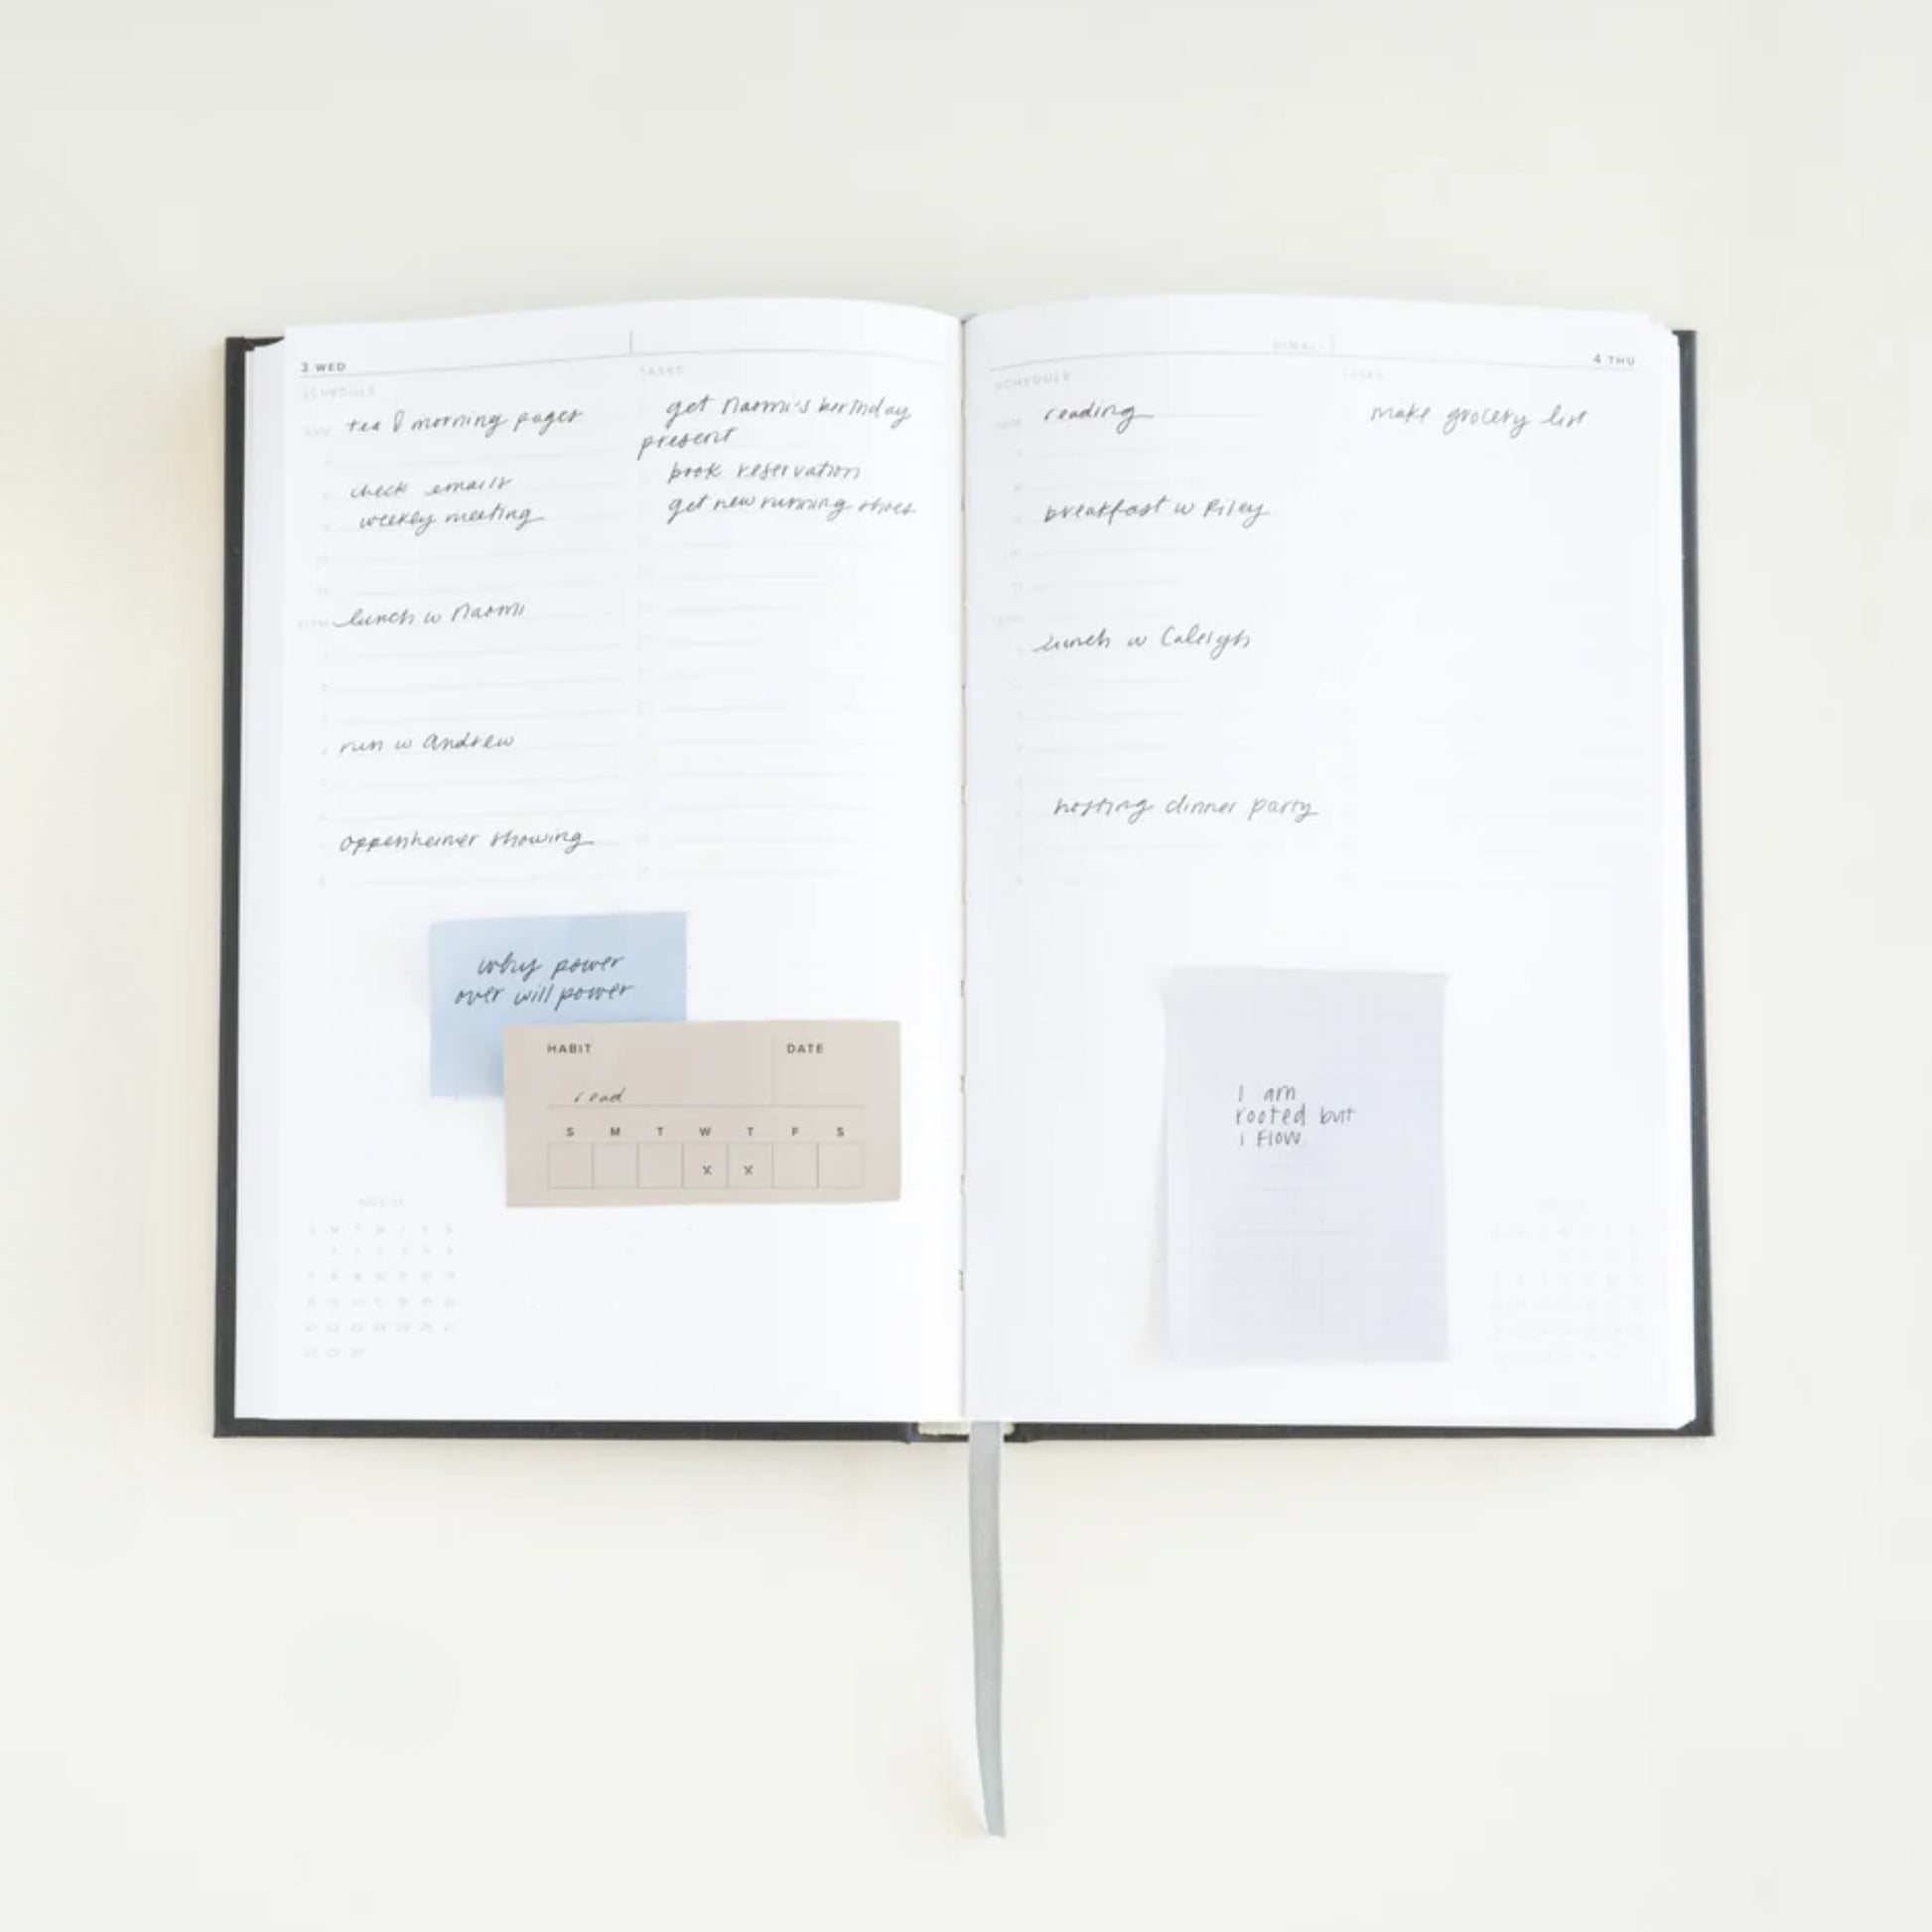 3 WED
SCHEDULE
6AM tea & morning pages
check emails
weekly meeting
12PM lunch w Naomi
run w Andrew
oppenheimer showing
TASKS
get Naomi's birthday
present
book reservation
get new running shoes
why power
over will power
HABIT DATE
read
S M T W T F S
x x
4 THU
SCHEDULE
reading
breakfast w Riley
lunch w Caleigh
hosting dinner party
TASKS
make grocery list
I am
rooted but
i Flow